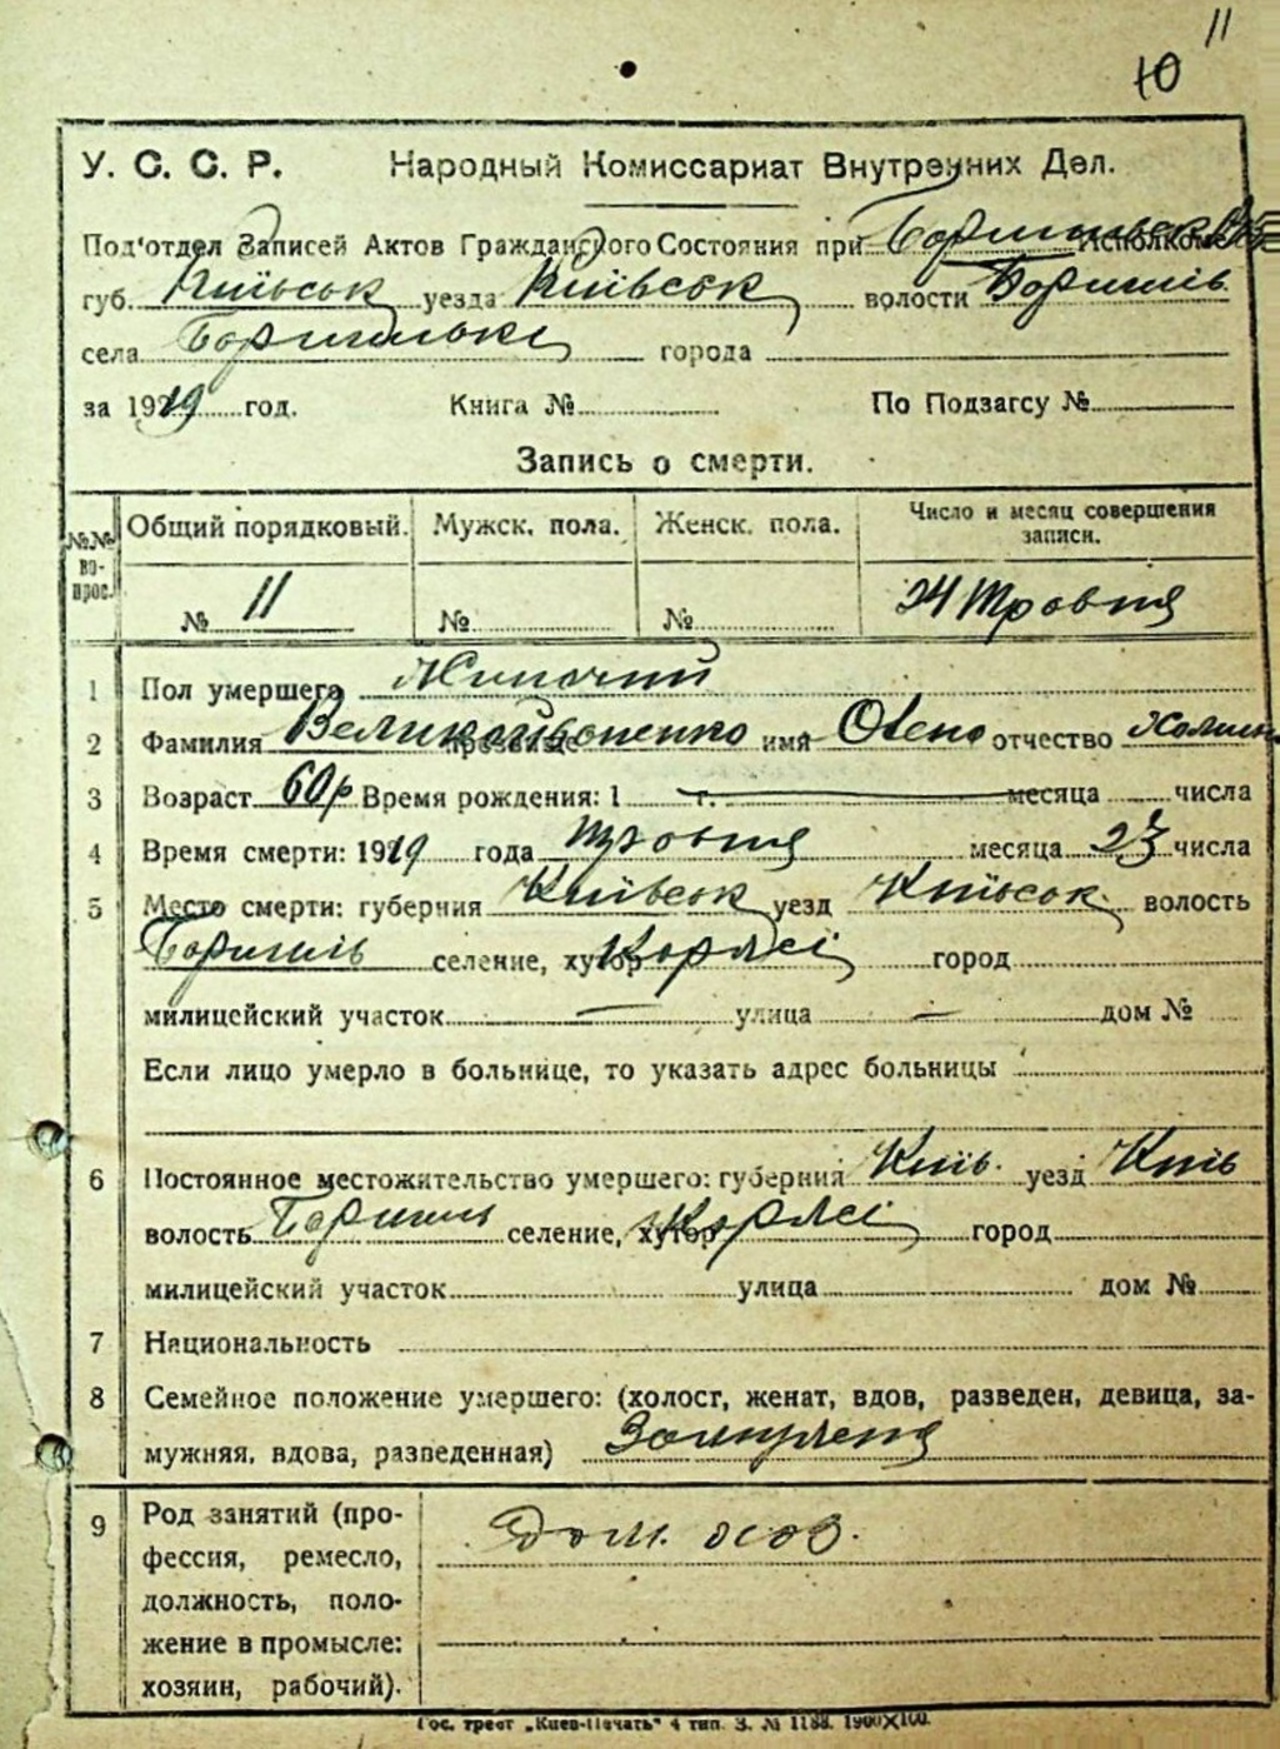 11
10
У. С. С. Р. Народный Комиссариат Внутренних Дел.
Под'отдел Записей Актов Гражданского Состояния при Исполкоме
губ. Київськ уезда Київськ волости Баришпіль
села города
за 1919 год. Книга № По Подзагсу №
Запись о смерти.
№№ вопрос. Общий порядковый. Мужск. пола. Женск. пола. Число и месяц совершения записи.
№ 11 № № 24 Травня
1 Пол умершего Жиночий
2 Фамилия имя Олена отчество
3 Возраст 60 р Время рождения: 1 г. месяца числа
4 Время смерти: 1919 года Травня месяца 23 числа
5 Место смерти: губерния Київськ уезд Київськ. волость
селение, хутор город
милицейский участок — улица — дом №
Если лицо умерло в больнице, то указать адрес больницы
6 Постоянное местожительство умершего: губерния Київ. уезд Київ
волость селение, хутор город
милицейский участок улица дом №
7 Национальность
8 Семейное положение умершего: (холост, женат, вдов, разведен, девица, за-
мужняя, вдова, разведенная) Замужня
9 Род занятий (про-
фессия, ремесло,
должность, поло-
жение в промысле:
хозяин, рабочий).
дом. хоз.
Гос. трест „Киев-Печать“ 4 тип. З. № 1188. 1900X100.